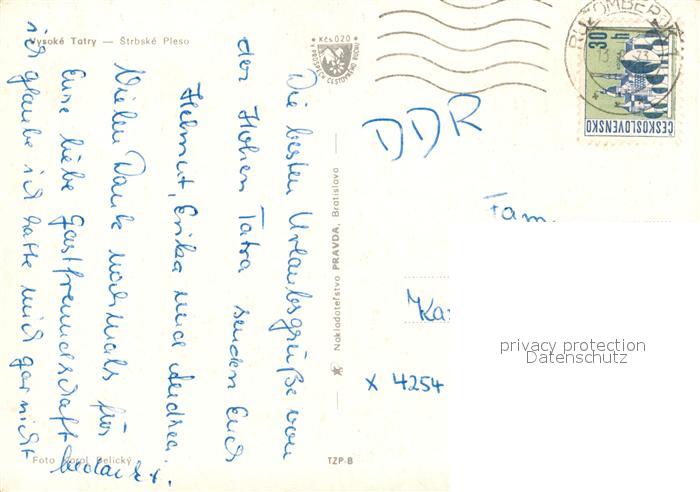 Vysoké Tatry — Štrbské Pleso
Kčs 0,20
V PROSPĚCH CESTOVNÉHO RUCHU
RUŽOMBEROK
30 h
ČESKOSLOVENSKO
Die besten Urlaubsgrüße von
der Hohen Tatra senden Euch
Helmut, Erika und Andrea.
Vielen Dank nochmals für
Eure liebe Gastfreundschaft
ich glaube ich hatte mich gar nicht
bedankt.
Foto Karol Belický
TZP-B
Nakladateľstvo PRAVDA, Bratislava
DDR
Fam.
X 4254
privacy protection
Datenschutz